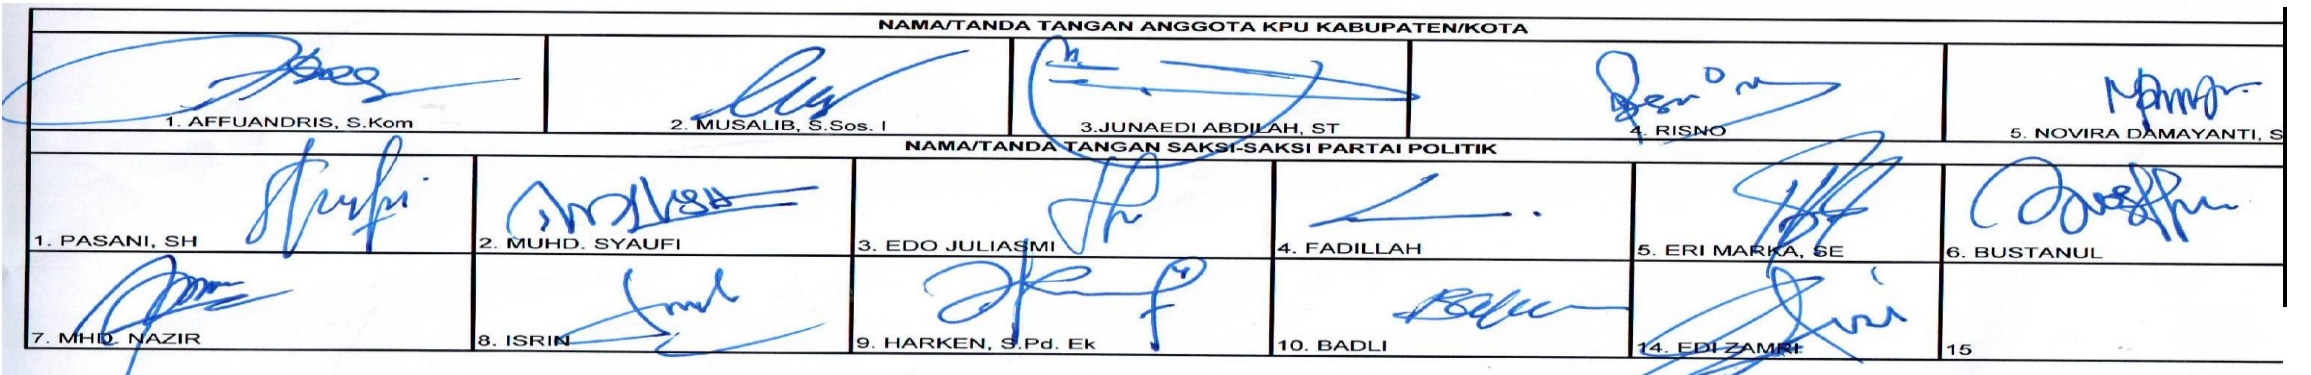 NAMA/TANDA TANGAN ANGGOTA KPU KABUPATEN/KOTA
1. AFFUANDRIS, S.Kom 2. MUSALIB, S.Sos. I 3.JUNAEDI ABDILAH, ST 4. RISNO 5. NOVIRA DAMAYANTI, S
NAMA/TANDA TANGAN SAKSI-SAKSI PARTAI POLITIK
1. PASANI, SH 2. MUHD. SYAUFI 3. EDO JULIASMI 4. FADILLAH 5. ERI MARKA, SE 6. BUSTANUL
7. MHD. NAZIR 8. ISRIN 9. HARKEN, S.Pd. Ek 10. BADLI 14. EDI ZAMRI 15